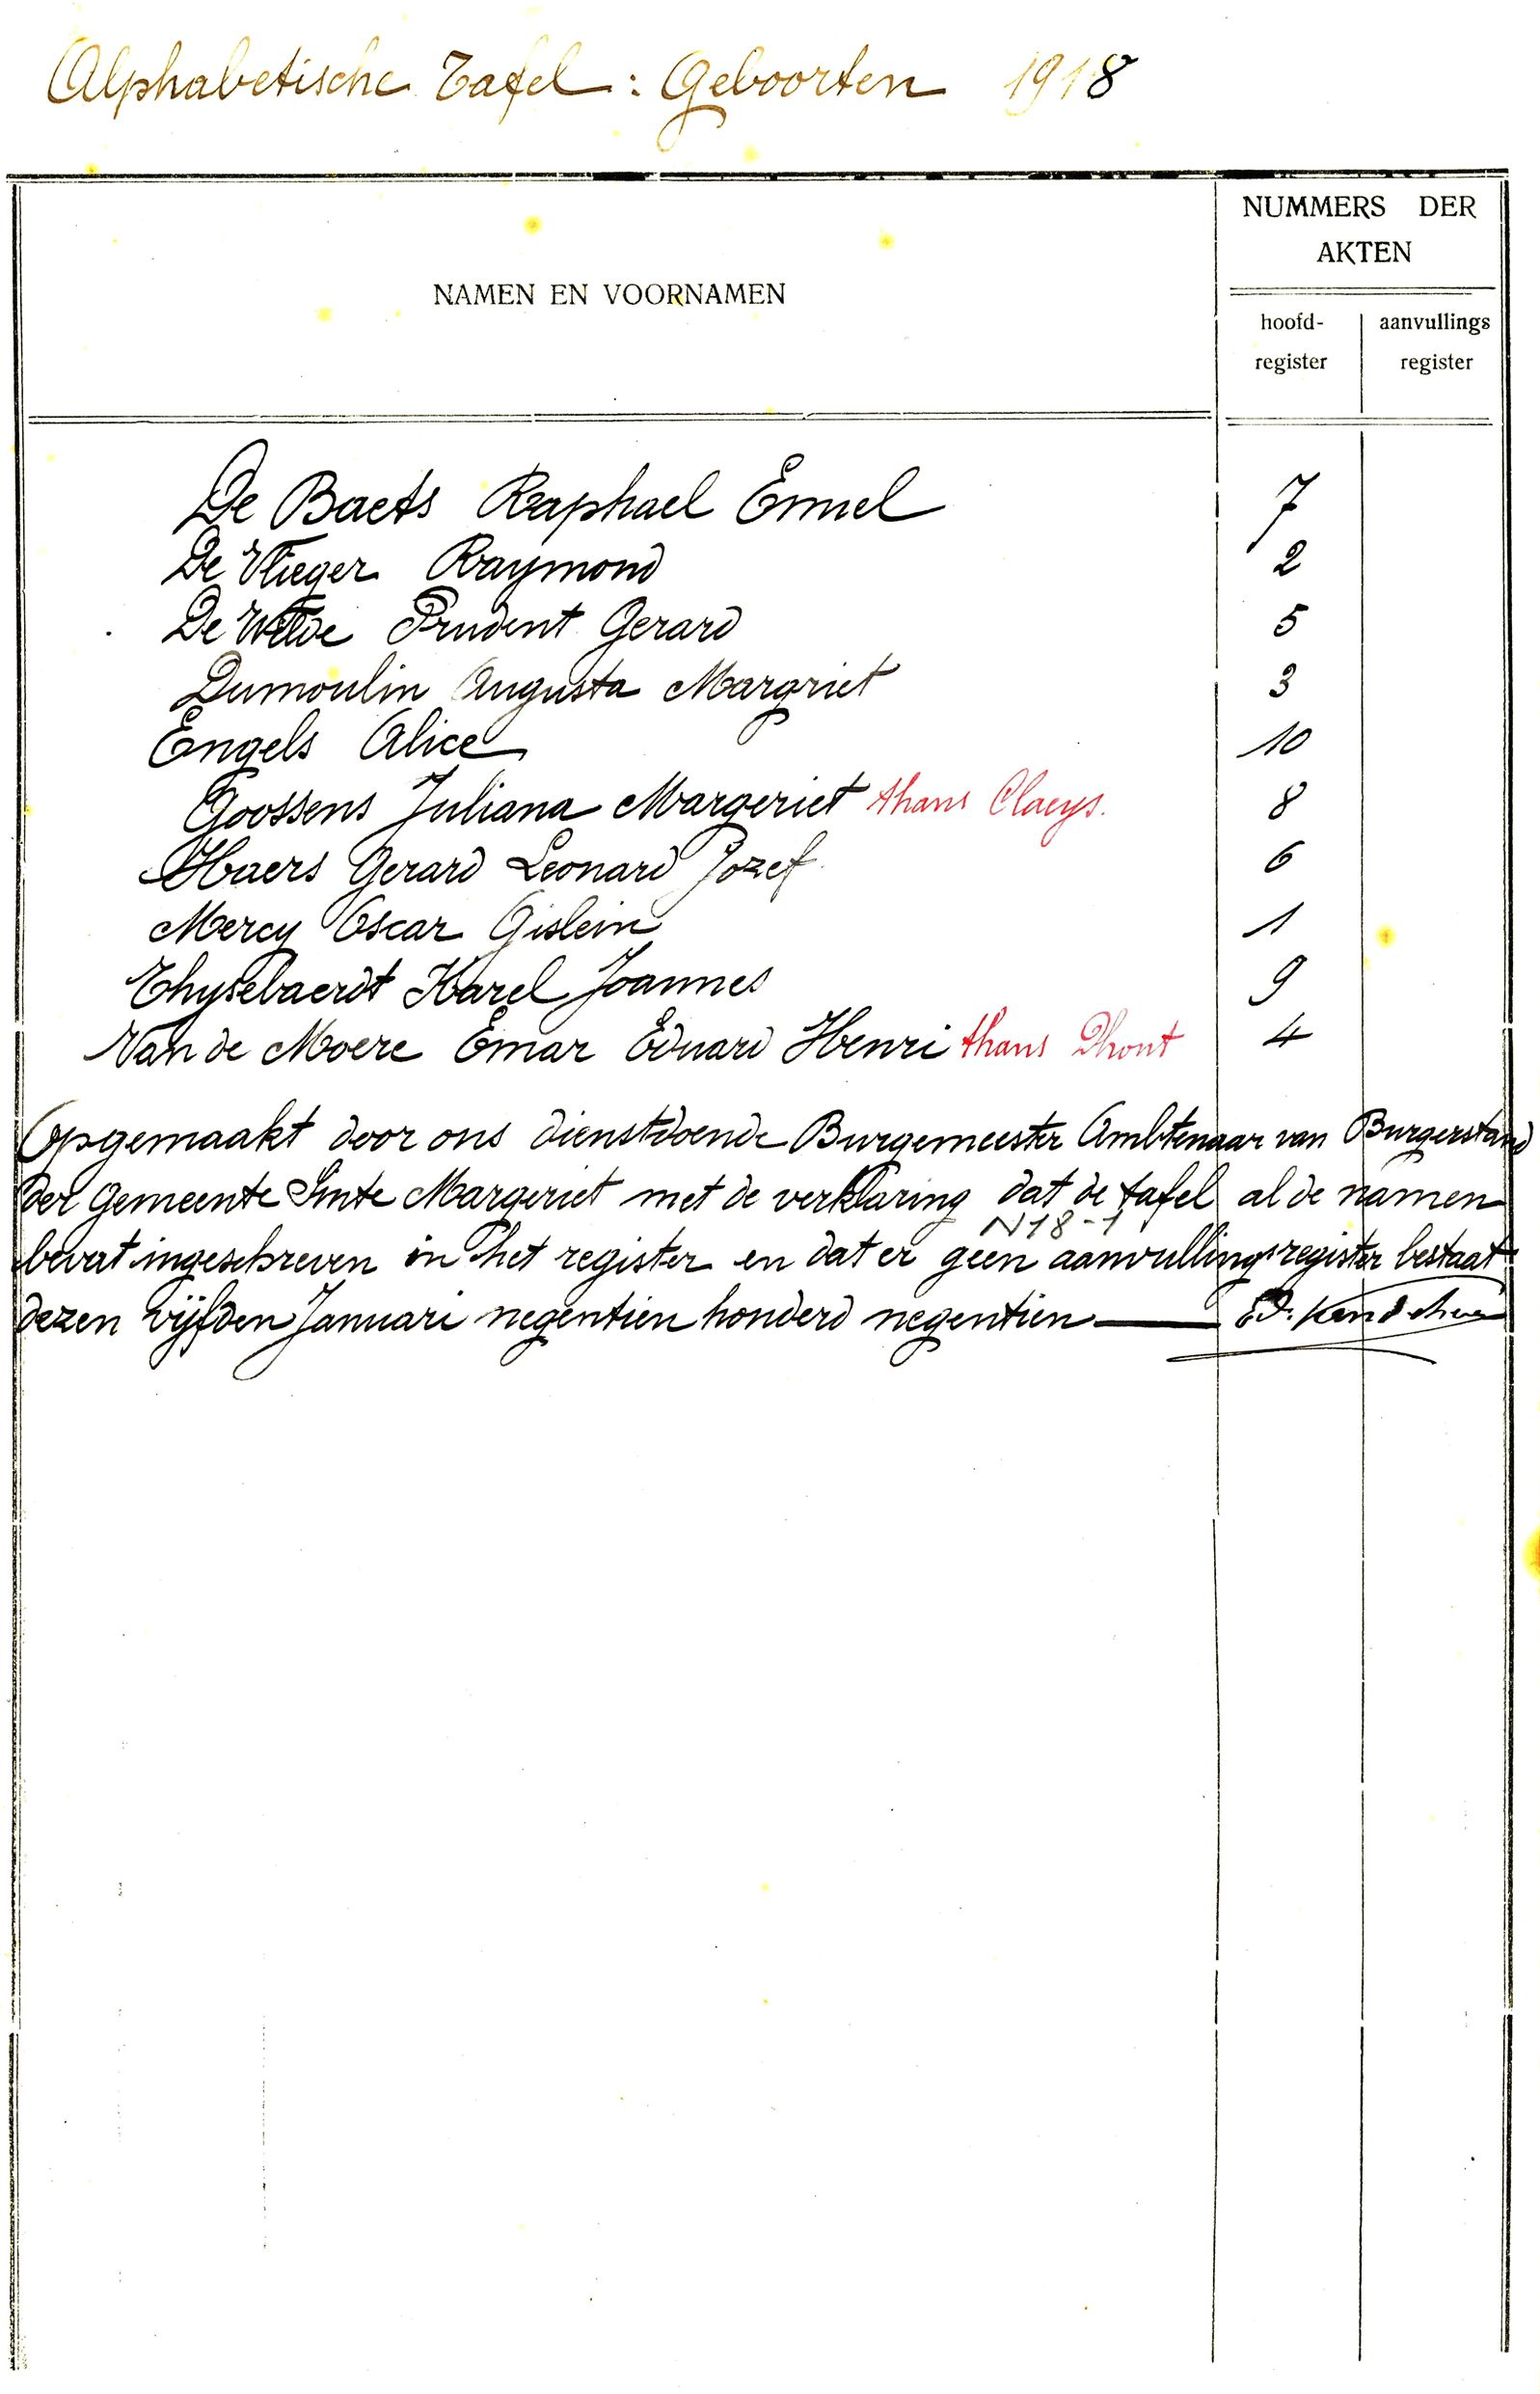 Alphabetische Tafel : Geboorten 1918
NAMEN EN VOORNAMEN
NUMMERS DER
AKTEN
hoofd-
register
aanvullings
register
De Baets Raphael Emiel 7
De Vlieger Raymond 2
De Wilde Prudent Gerard 5
Dumoulin Augusta Margriet 3
Engels Alice 10
Goossens Juliana Margeriet thans Claeys. 8
Haers Gerard Leonard Jozef 6
Mercy Oscar Gislein 1
Thysebaerdt Karel Joannes 9
Van de Moere Emar Eduard Henri thans Dhont 4
Opgemaakt door ons dienstdoende Burgemeester Ambtenaar van Burgerstand
der Gemeente Sinte Margeriet met de verklaring dat de tafel al de namen
N 18-1
bevat ingeschreven in het register en dat er geen aanvullingsregister bestaat
dezen vijfden Januari negentien honderd negentien